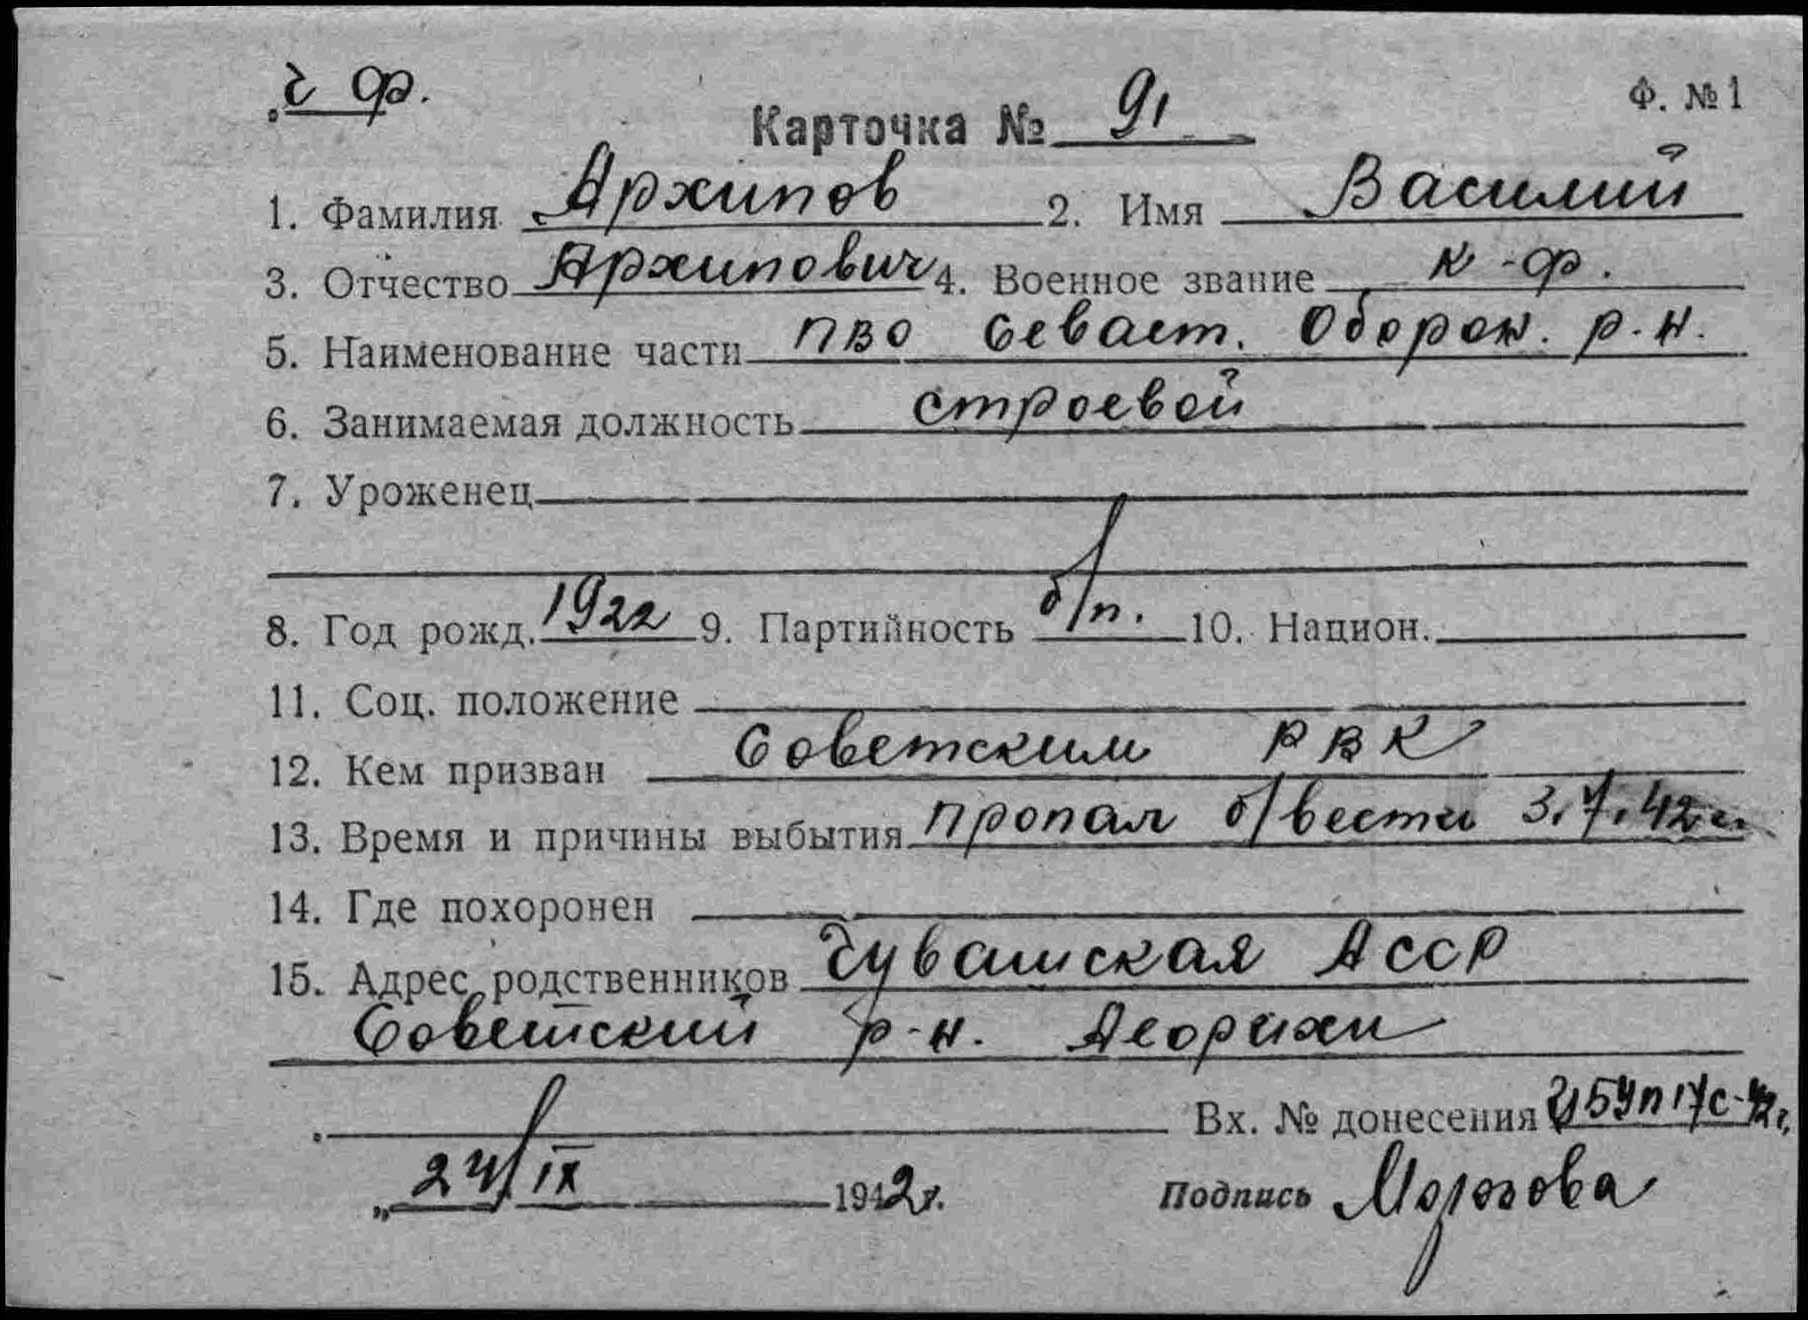 ч ф.
Ф. №1
Карточка № 91
1. Фамилия Архипов 2. Имя Василий
3. Отчество Архипович 4. Военное звание к-ф.
5. Наименование части ПВО Севаст. Оборон. р.н.
6. Занимаемая должность строевой
7. Уроженец
8. Год рожд. 1922 9. Партийность б/п. 10. Национ.
11. Соц. положение
12. Кем призван Советским РВК
13. Время и причины выбытия пропал б/вести 3.7.42г.
14. Где похоронен
15. Адрес родственников Чувашская АССР
Советский р-н.
Вх. № донесения
24/IX 1942г.
Подпись Морозова